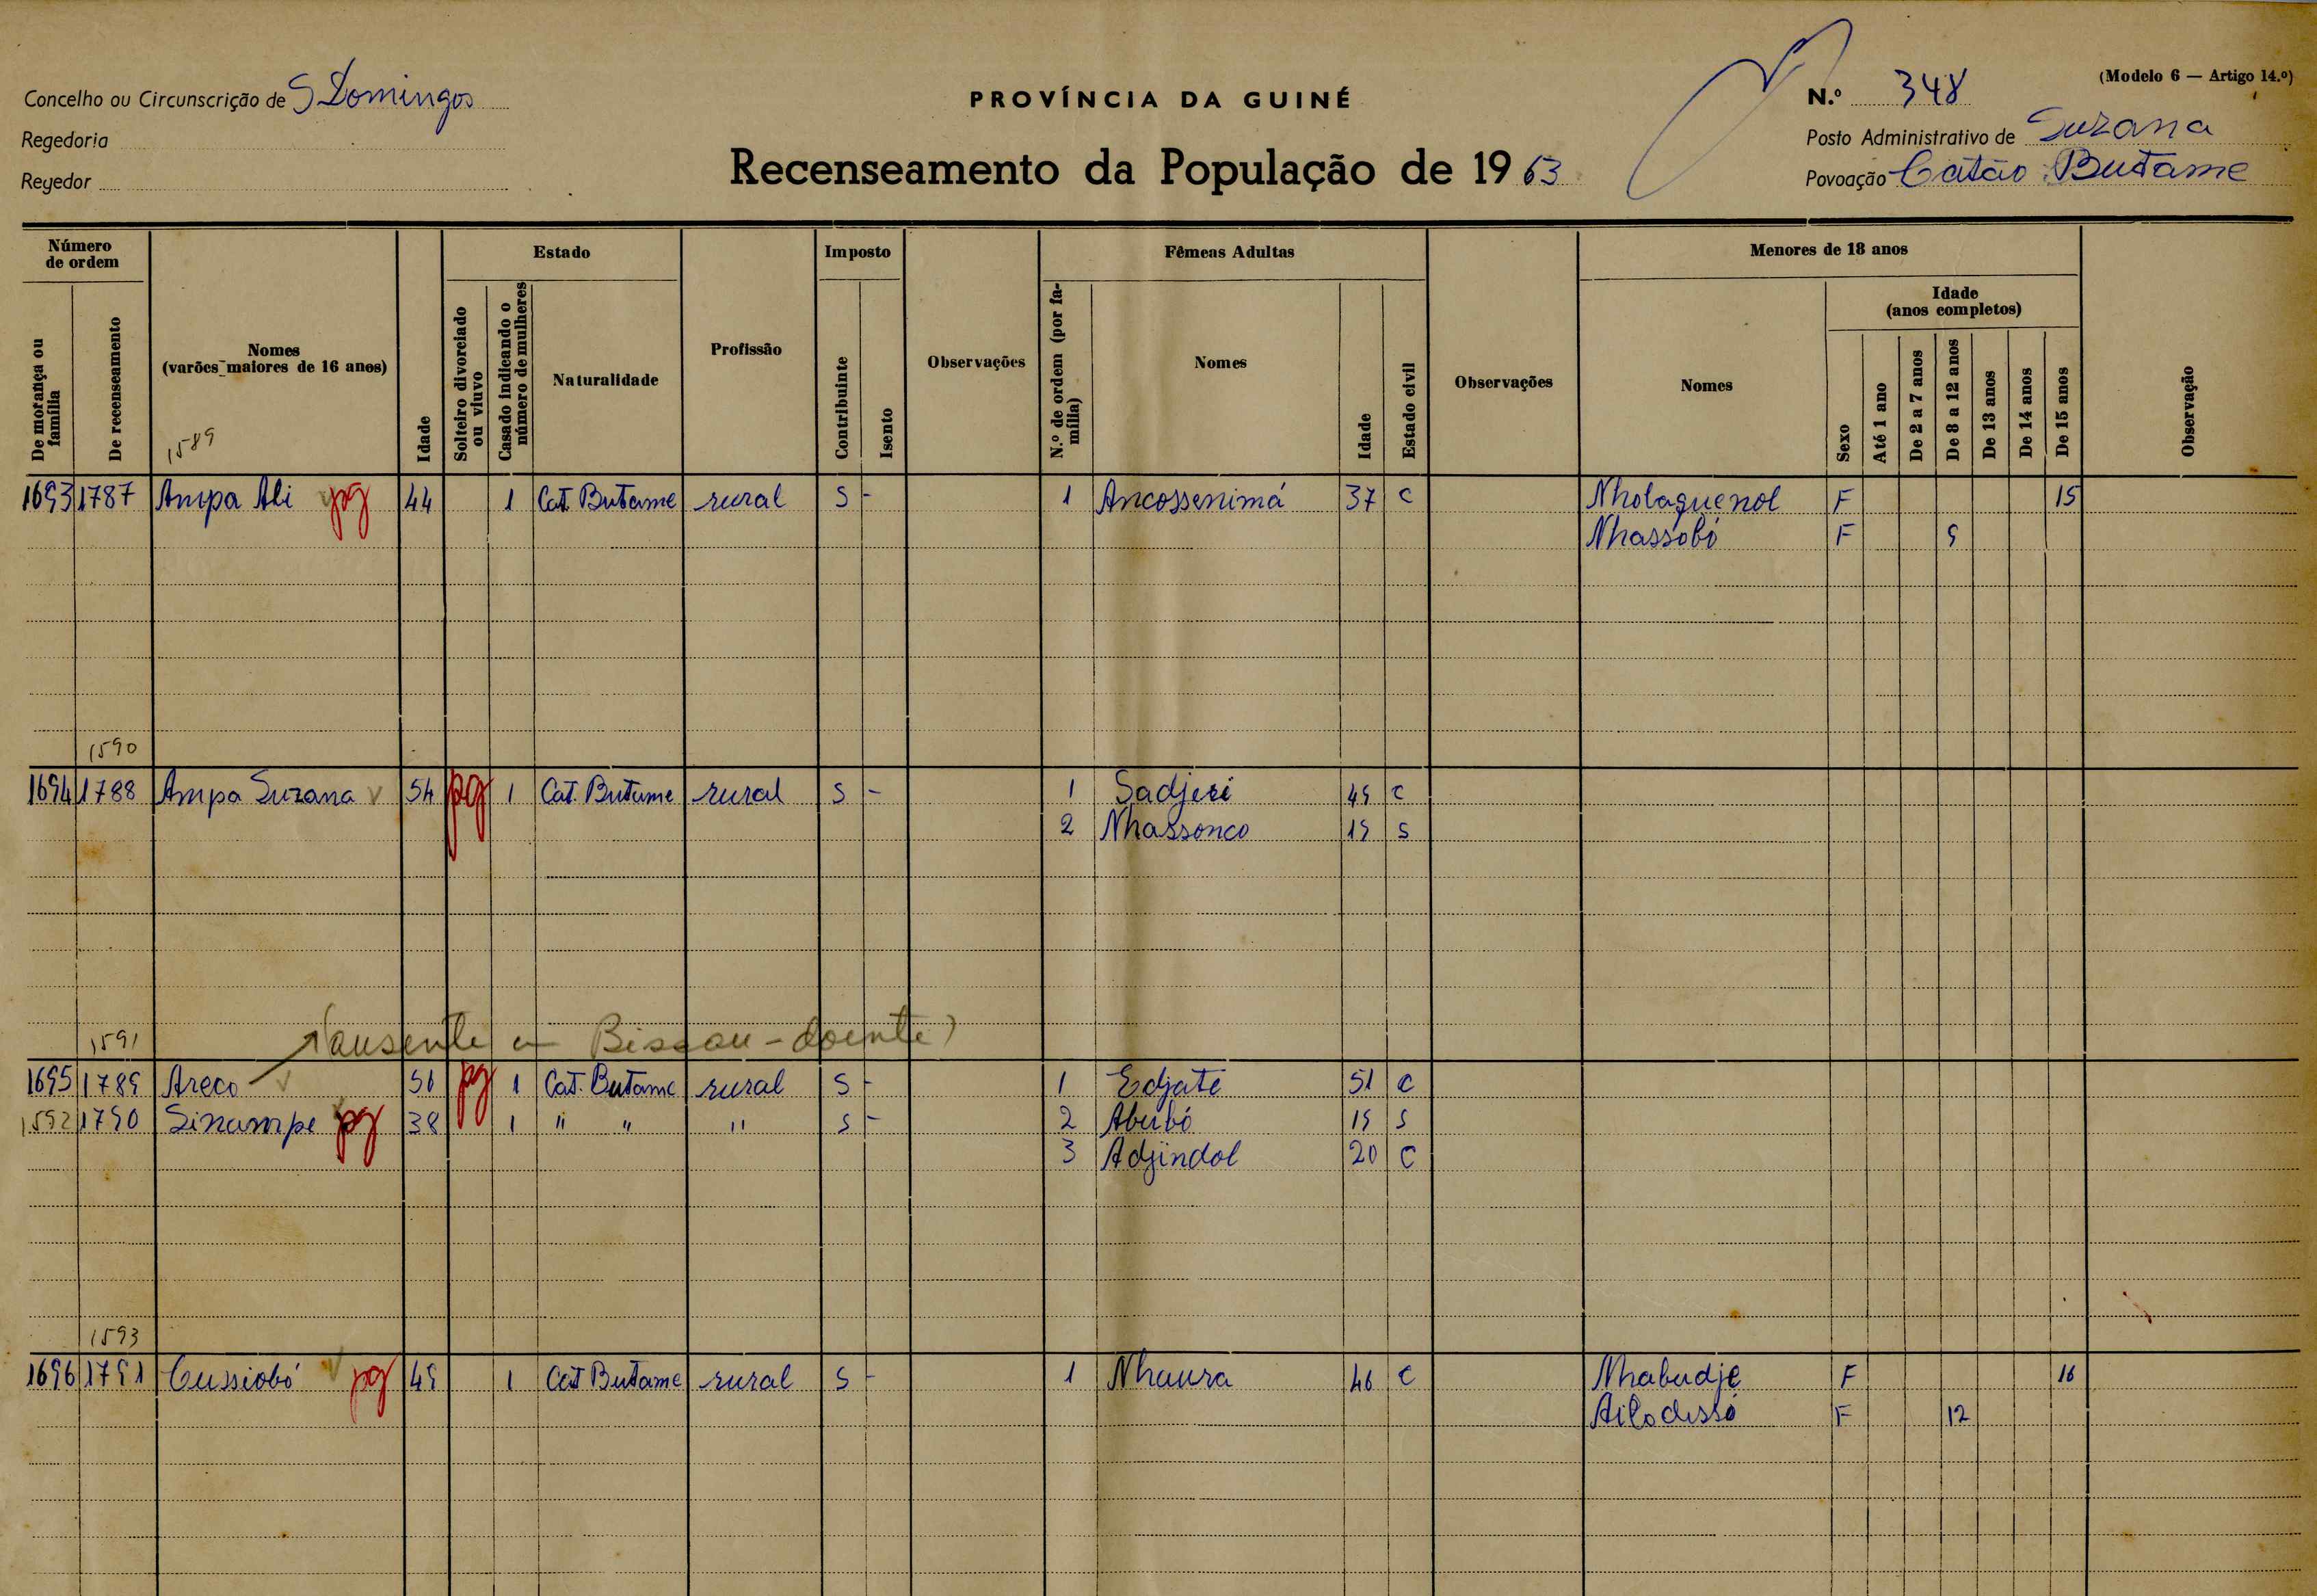 Concelho ou Circunscrição de S Domingos
Regedoria
Regedor
PROVÍNCIA DA GUINÉ
Recenseamento da População de 1963
(Modelo 6 — Artigo 14.º)
N.º 348
Posto Administrativo de Suzana
Povoação Catão Butame
Número de ordem
De morança ou família
De recenseamento
Nomes (varões maiores de 16 anos)
1589
Idade
Estado
Solteiro divorciado ou viuvo
Casado indicando o número de mulheres
Naturalidade
Profissão
Imposto
Contribuinte
Isento
Observações
Fêmeas Adultas
N.º de ordem (por família)
Nomes
Idade
Estado civil
Observações
Menores de 18 anos
Nomes
Sexo
Idade (anos completos)
Até 1 ano
De 2 a 7 anos
De 8 a 12 anos
De 13 anos
De 14 anos
De 15 anos
Observação
1693 1787 Ampa Ali pg 44 1 Cat. Butame rural S - 1 Ancossenimá 37 C Nholaguenol F 15
Nhassobó F 9
1590
1694 1788 Ampa Suzana v 54 pg 1 Cat. Butame rural S - 1 Sadjeri 49 C
2 Nhassonco 19 S
1591 (ausente em Bissau - doente)
1695 1789 Areco v pg 1 Cat. Butame rural S - 1 Edjate 51 C
1592 1790 Sinampe pg 38 1 " " " S - 2 Abubó 19 S
3 Adjindol 20 C
1593
1696 1791 Cussiobó v pg 49 1 Cat Butame rural S - 1 Nhaura 46 C Nhabudje F 16
Ailodissó F 12